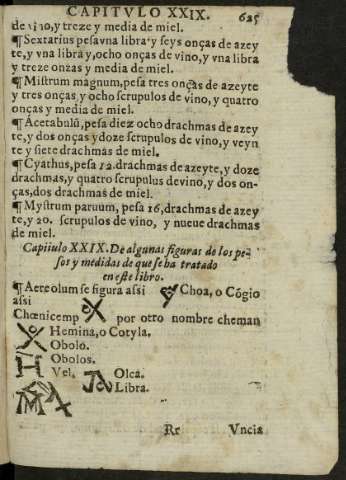 CAPITVLO XXIX.
625
de vino, y treze y media de miel.
¶Sextarius pesa vna libra y seys onças de azey
te, y vna libra y, ocho onças de vino, y vna libra
y treze onzas y media de miel.
¶Mistrum magnum, pesa tres onças de azeyte
y tres onças, y ocho scrupulos de vino, y quatro
onças y media de miel.
¶Acetabulũ, pesa diez ocho drachmas de azey
te, y dos onças y doze scrupulos de vino, y veyn
te y siete drachmas de miel.
¶Cyathus, pesa 12. drachmas de azeyte, y doze
drachmas, y quatro scrupulos de vino, y dos on-
ças, dos drachmas de miel.
¶Mystrum paruum, pesa 16, drachmas de azey
te, y 20. scrupulos de vino, y nueue drachmas
de miel.
Capitulo XXIX. De algunas figuras de los pe-
sos y medidas de que se ha tratado
en este libro.
¶Aereolum se figura assi Choa, o Cõgio
assi
Chœnicemp por otro nombre cheman
Hemina, o Cotyla.
Obolo.
Obolos.
Vel. Olca.
Libra.
Rr Vncia